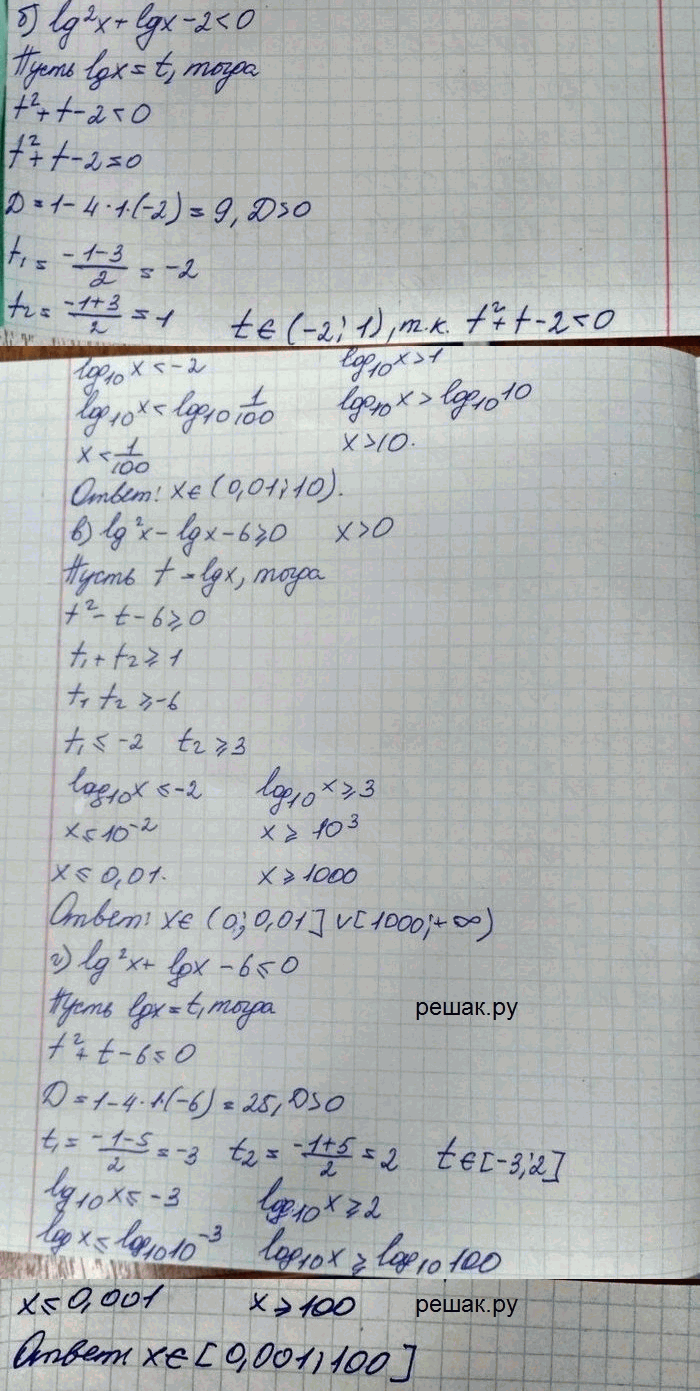 б) lg²x + lgx - 2 < 0
Пусть lgx = t, тогда
t² + t - 2 < 0
t² + t - 2 = 0
D = 1 - 4·1·(-2) = 9, D>0
t₁ = (-1-3)/2 = -2
t₂ = (-1+3)/2 = 1 t ∈ (-2; 1), т.к. t² + t - 2 < 0
log₁₀x < -2 log₁₀x > 1
log₁₀x < log₁₀ 1/100 log₁₀x > log₁₀10
x < 1/100 x > 10.
Ответ: x ∈ (0,01; 10).
в) lg²x - lgx - 6 ⩾ 0 x > 0
Пусть t = lgx, тогда
t² - t - 6 ⩾ 0
t₁ + t₂ ⩾ 1
t₁ t₂ ⩾ -6
t₁ ⩽ -2 t₂ ⩾ 3
log₁₀x ⩽ -2 log₁₀x ⩾ 3
x ⩽ 10⁻² x ⩾ 10³
x ⩽ 0,01. x ⩾ 1000
Ответ: x ∈ (0; 0,01] ∨ [1000; +∞)
г) lg²x + lgx - 6 ⩽ 0
Пусть lgx = t, тогда решак.ру
t² + t - 6 ⩽ 0
D = 1 - 4·1·(-6) = 25, D>0
t₁ = (-1-5)/2 = -3 t₂ = (-1+5)/2 = 2 t ∈ [-3; 2]
lg₁₀x ⩽ -3 log₁₀x ⩾ 2
logx ⩽ log₁₀10⁻³ log₁₀x ⩾ log₁₀100
x ⩽ 0,001 x ⩾ 100 решак.ру
Ответ: x ∈ [0,001; 100]